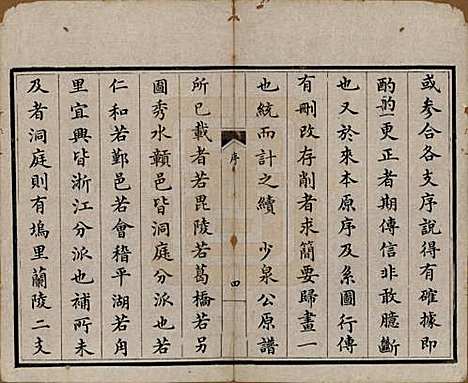 或参合各支序説得有確據即
酌酌更正者期傳信非敢臆斷
也又於来本原序及系圖行傳
有刪改存削者求簡要歸畫一
也統而計之續 少泉公原譜
序
四
所已載者若毘陵若葛橋若另
圖秀水贛邑皆洞庭分派也若
仁和若鄞邑若會稽平湖若角
里宜興皆浙江分派也補所未
及者洞庭則有塢里蘭陵二支